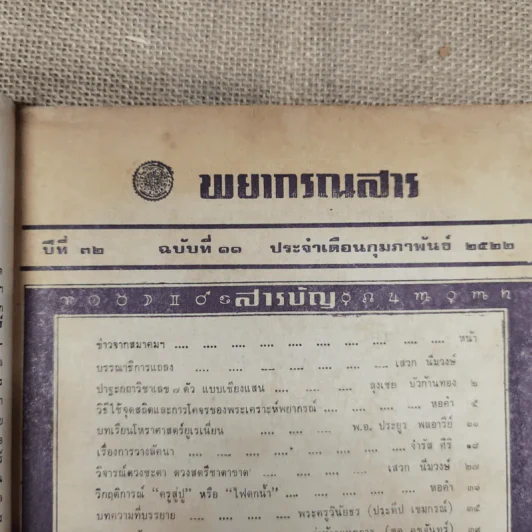 พยากรณสาร
ปีที่ ๓๒ ฉบับที่ ๑๑ ประจำเดือนกุมภาพันธ์ ๒๕๒๒
สารบัญ
ข่าวจากสมาคมฯ .... .... .... .... .... .... .... .... .... .... .... หน้า
บรรณาธิการแถลง .... .... .... .... .... .... .... เสวก นีมวงษ์
ปาฐะกถาวิชาเลข ๗ ตัว แบบเชียงแสน .... .... .... ลุงเชย บัวก้านทอง ๒
วิธีใช้จุดสถิตและการโคจรของพระเคราะห์พยากรณ์ .... .... .... .... หอคำ ๕
บทเรียนโหราศาสตร์ยูเรเนียน .... .... .... พ.อ. ประยูร พลอารีย์ ๑๑
เรื่องการวางลัคนา .... .... .... .... .... .... .... จำรัส ศิริ ๑๘
วิจารณ์ดวงชะตา ดวงสตรีชาตาขาด .... .... .... .... เสวก นีมวงษ์ ๒๗
วิกฤติการณ์ "ครูสู่ปู่" หรือ "ไฟตกน้ำ" .... .... .... .... .... หอคำ ๓๑
บทความที่บรรยาย .... .... .... .... พระครูวินัยธร (ประทีป เขมกรณ์) ๓๕